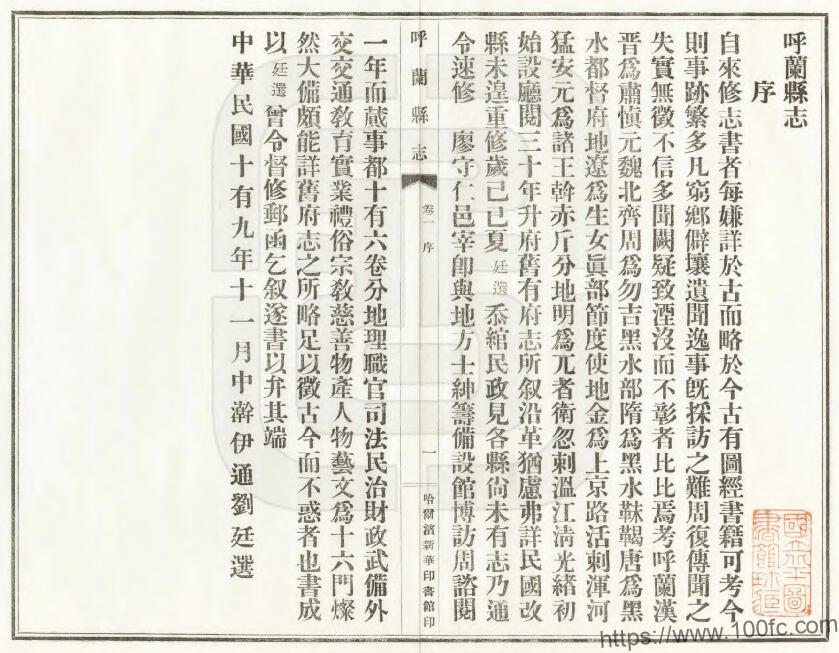 呼蘭縣志
序
自來修志書者每嫌詳於古而略於今古有圖經書籍可考今
則事跡繁多凡窮鄉僻壤遺聞逸事旣採訪之難周復傳聞之
失實無徵不信多聞闕疑致湮沒而不彰者比比焉考呼蘭漢
晉爲肅愼元魏北齊周爲勿吉黑水部隋爲黑水靺鞨唐爲黑
水都督府地遼爲生女眞部節度使地金爲上京路活剌渾河
猛安元爲諸王斡赤斤分地明爲兀者衛忽剌溫江淸光緒初
始設廳閱三十年升府舊有府志所叙沿革猶慮弗詳民國改
縣未遑重修歲己巳夏廷選忝綰民政見各縣尙未有志乃通
令速修　廖守仁邑宰卽與地方士紳籌備設館博訪周諮閱
呼蘭縣志
卷一　序
一
哈爾濱新華印書館印
一年而蕆事都十有六卷分地理職官司法民治財政武備外
交交通敎育實業禮俗宗敎慈善物產人物藝文爲十六門燦
然大備頗能詳舊府志之所略足以徵古今而不惑者也書成
以廷選曾令督修郵函乞叙遂書以弁其端
中華民國十有九年十一月中澣伊通劉廷選
https://www.100fc.com